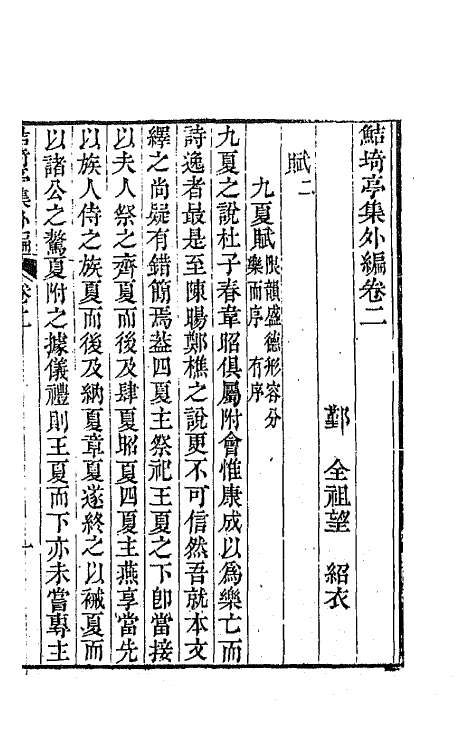 鮚埼亭集外編卷二
鄞　全祖望　紹衣
賦二
九夏賦限韻盛德形容分
樂而序　有序
九夏之說杜子春韋昭俱屬附會惟康成以爲樂亡而
詩逸者最是至陳暘鄭樵之說更不可信然吾就本文
繹之尚疑有錯簡焉蓋四夏主祭祀王夏之下卽當接
以夫人祭之齊夏而後及肆夏昭夏四夏主燕享當先
以族人侍之族夏而後及納夏章夏遂終之以祴夏而
以諸公之驁夏附之據儀禮則王夏而下亦未嘗專主
鮚埼亭集外編　卷二　一